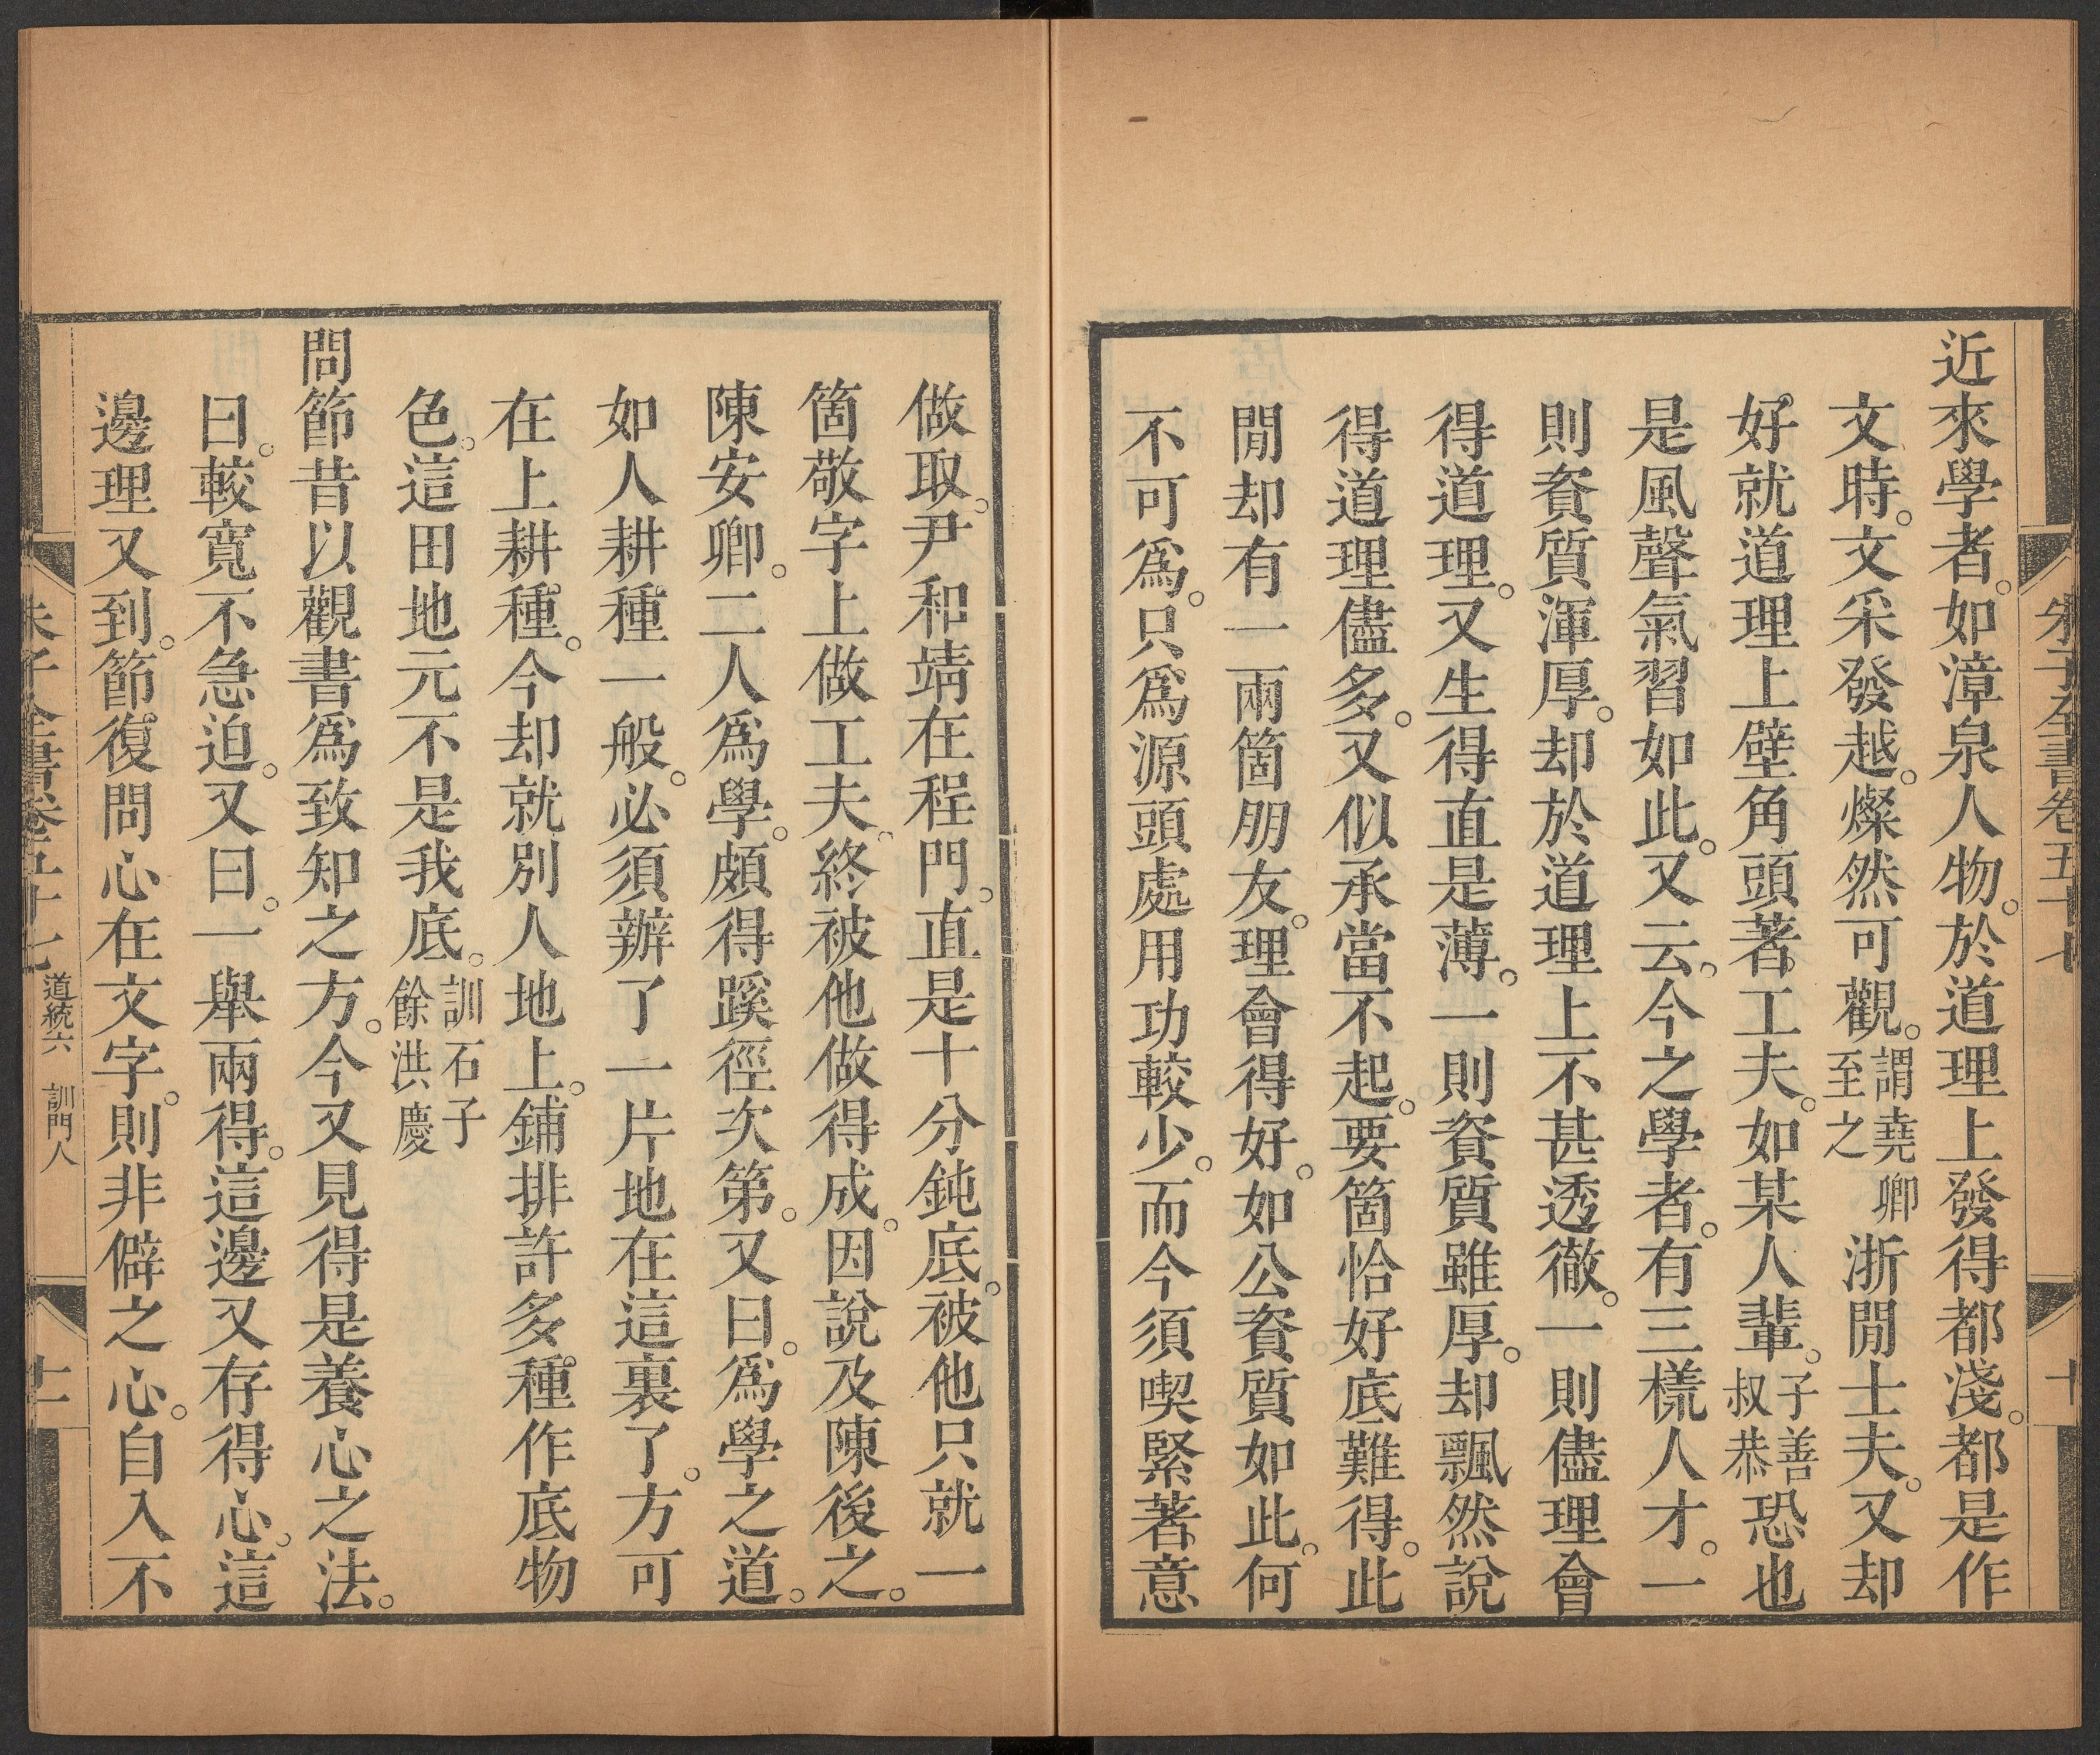 朱子全書卷五十七
十
近來學者。如漳泉人物。於道理上發得都淺。都是作
文時。文采發越。燦然可觀。謂堯卿至之浙閒士夫。又却
好就道理上壁角頭著工夫。如某人輩。子善叔恭恐也
是風聲氣習如此。又云。今之學者。有三樣人才。一
則資質渾厚。却於道理上不甚透徹。一則儘理會
得道理。又生得直是薄。一則資質雖厚。却飄然說
得道理儘多。又似承當不起。要箇恰好底難得。此
閒却有一兩箇朋友。理會得好。如公資質如此。何
不可爲。只爲源頭處用功較少。而今須喫緊著意
做取。尹和靖在程門。直是十分鈍底。被他只就一
箇敬字上做工夫。終被他做得成。因說及陳後之。
陳安卿。二人爲學。頗得蹊徑次第。又曰。爲學之道。
如人耕種一般。必須辦了一片地在這裏了。方可
在上耕種。今却就別人地上。鋪排許多種作底物
色。這田地元不是我底。訓石子餘洪慶
問節昔以觀書爲致知之方。今又見得是養心之法。
曰。較寬不急迫。又曰。一舉兩得。這邊又存得心。這
邊理又到。節復問心在文字。則非僻之心。自入不
朱子全書卷五十七 道統六 訓門人
十一